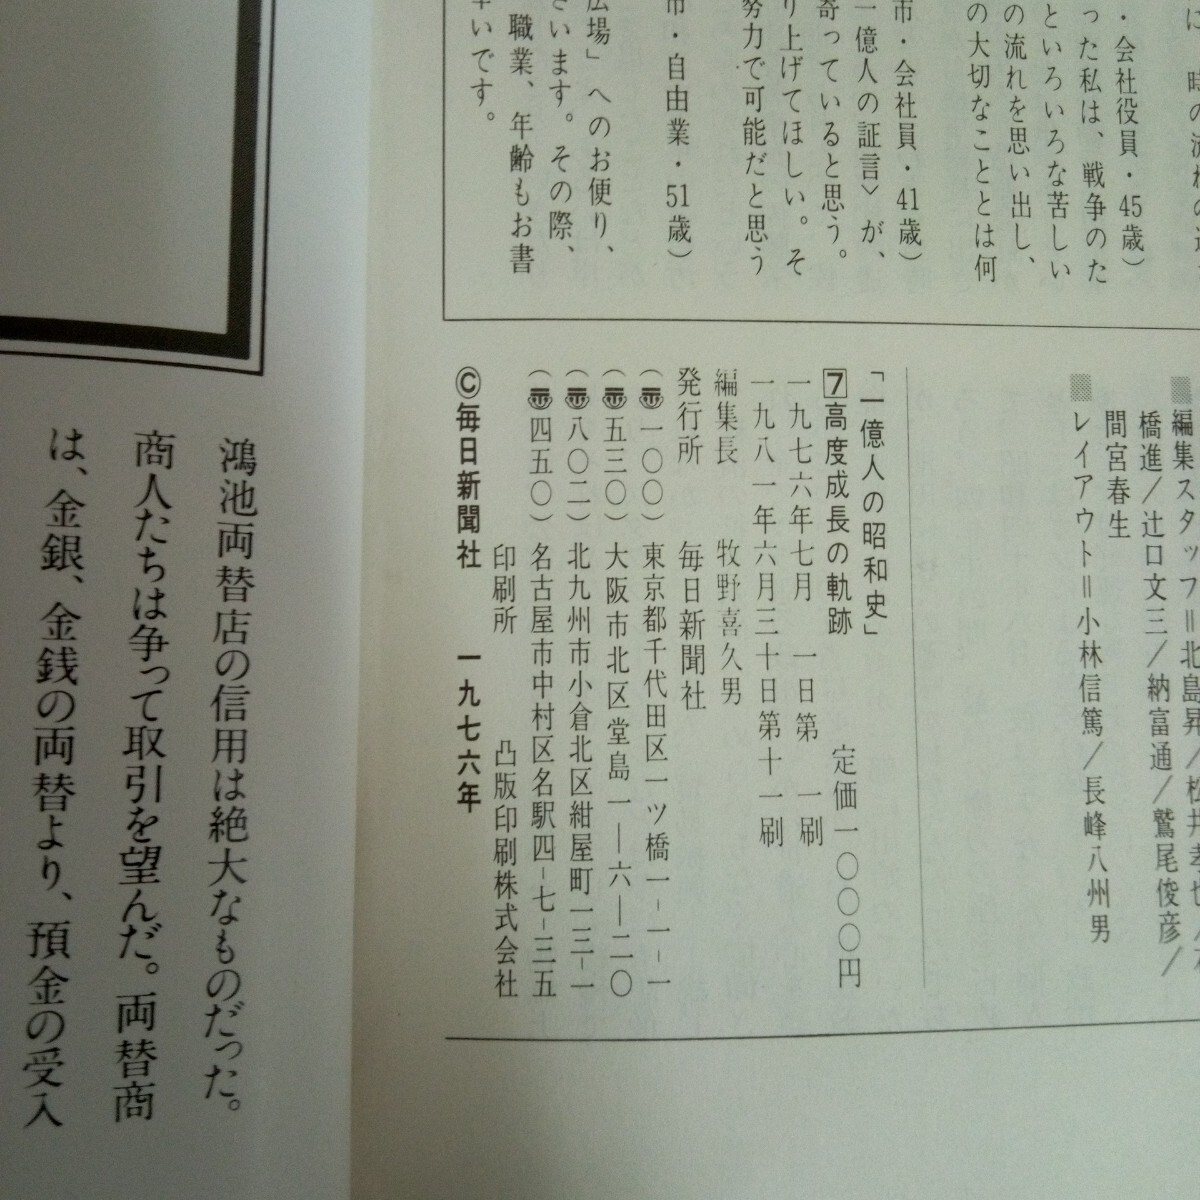 ・会社役員・45歳）
った私は、戦争のた
といろいろな苦しい
の流れを思い出し、
の大切なこととは何
市・会社員・41歳）
一億人の証言〉が、
寄っていると思う。
り上げてほしい。そ
努力で可能だと思う
市・自由業・51歳）
広場」へのお便り、
ざいます。その際、
職業、年齢もお書
幸いです。
編集スタッフ＝北島昇/松井孝也/
橋進/辻口文三/納富通/鷲尾俊彦/
間宮春生
レイアウト＝小林信篤/長峰八州男
「一億人の昭和史」
7高度成長の軌跡 定価一〇〇〇円
一九七六年七月 一日第 一刷
一九八一年六月三十日第十一刷
編集長 牧野喜久男
発行所 毎日新聞社
（〠一〇〇）東京都千代田区一ツ橋一-一-一
（〠五三〇）大阪市北区堂島一―六―二〇
（〠八〇二）北九州市小倉北区紺屋町一三-一
（〠四五〇）名古屋市中村区名駅四-七-三五
印刷所 凸版印刷株式会社
©毎日新聞社 一九七六年
鴻池両替店の信用は絶大なものだった。
商人たちは争って取引を望んだ。両替商
は、金銀、金銭の両替より、預金の受入